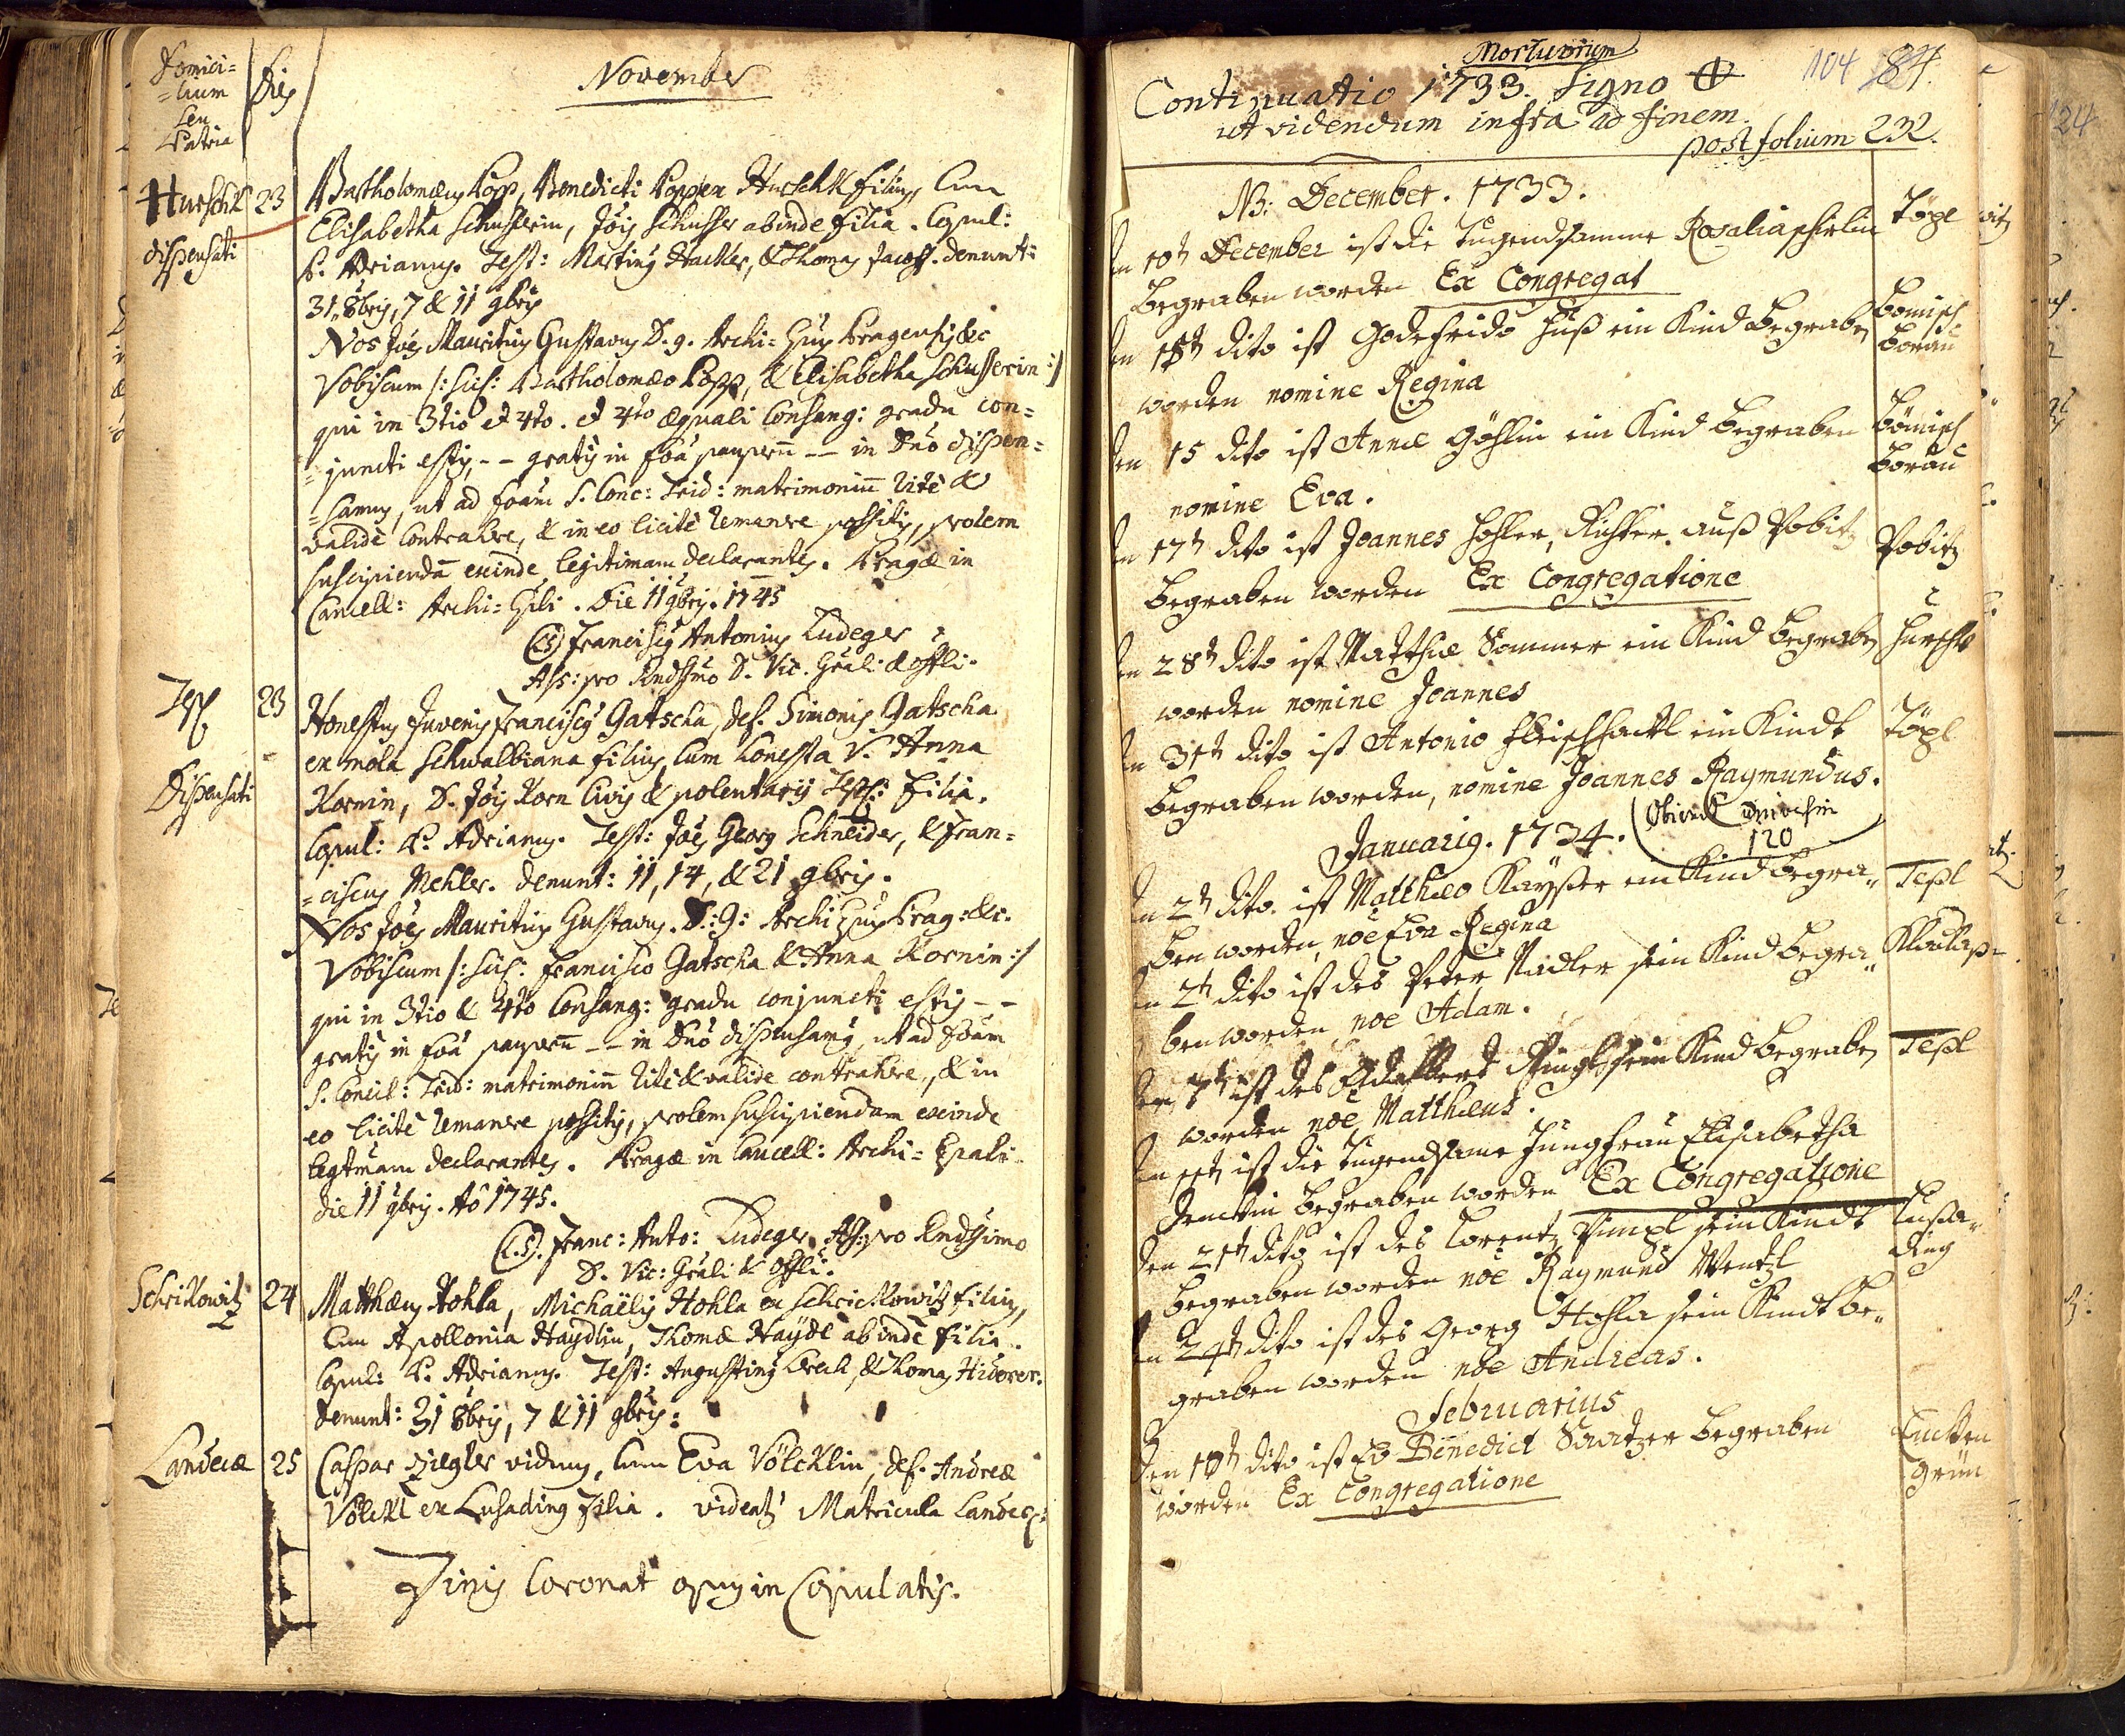 Domici=
=lium
seu
Patria
Dies
November
Hurschk
dispensati
23
Bartholomæus Popp, Benedicti Poppen Hurschk filius, cum
Elisabetha Schusserin, Jois Schusser abinde filia. Copul:
P. Adrianus. Test: Martinus Hacker, & Thomas Jacob. denunt:
31. 8bris, 7 & 11 9bris
Nos Joes Mauritius Gustavus D. g. Archi=Epus Pragensis &c
Vobiscum /: scis: Bartholomæo Popp, & Elisabetha Schusserin :/
qui in 3tio et 4to. et 4to æquali Consang: gradu con=
=juncti estis, -- gratis in foâ pauperū -- in Dno dispen=
=samus, ut ad foam S. Conc: Trid: matrimoniū ritè &
validè contrahere, & in eo licitè remanere possitis, prolem
suscipiendā exinde legitimam declarantes. Pragæ in
Cancell: Archi=Epli. Die 11 9bris. 1745
(L.S) Franciscus Antonius Ludeger
Ass: pro Rndssmo D. Vic. Grali & offli.
Tepl
Dispensati
23
Honestus Juvenis Franciscus Gatscha, def. Simonis Gatscha
ex mola Schwalbiana filius, cum honesta V. Anna
Kornin, D. Jois Korn Civis & polentarij Tepl: filia.
Copul: P. Adrianus. Test: Joes Georg Schneider, & Fran=
=ciscus Mehler. denunt: 11, 14, & 21 9bris.
Nos Joes Mauritius Gustavus. D.: g: Archi Epus Prag: &c.
Vobiscum /: scis: Francisco Gatscha & Anna Kornin :/
qui in 3tio & 4to Consang: gradu conjuncti estis --
gratis in foâ pauperū -- in Dno dispensamus, ut ad foam
S. Concil: Trid: matrimoniū ritè & validè contrahere, & in
eo licitè remanere possitis, prolem suscipiendam exinde
legtimam declarantes. Pragæ in Cancell: Archi=Epali
die 11 9bris. Aô 1745.
(L.S). Franc: Anto: Ludeger Ass: pro Rndssimo
D. Vic: Grali & offli.
Schrikowitz
24
Matthæus Hohla, Michaëlis Hohla ex Schrickowitz filius,
cum Apollonia Haydlin, Thomæ Haydl abinde filia.
Copul: P. Adrianus. Test: Augustinus Beck, & Thomas Hiderer.
denunt: 31 8bris, 7 & 11 9bris:
Landecæ
25
Caspar Ziegler viduus, cum Eva Völcklin, def. Andreæ
Völckl ex Lusading filia. videatur Matricula Landec:
Finis Coronat opus in Copulatis.
Mortuorum
Continuatio 1733. Signo
104
84
ut videndum infra ad finem.
post folium 232.
NB: December. 1733.
den 10t December ist die tugendsamme Rosalia
Töpl
begraben worden Ex Congregat
den 15t dito ist Godefrido Huß ein Kind begraben
Bömisch
Borau
worden nomine Regina
den 15 dito ist Annæ Göhlin ein Kind begraben
Bömisch
Borau
nomine Eva.
den 17t dito ist Joannes Hohler, Richter auß Pobitz
Pobitz
begraben worden Ex Congregatione
den 28t dito ist Matthiæ Sommer ein Kind begraben
Hurschk
worden nomine Joannes
den 31t dito ist Antonio Fleischhackl ein Kindt
Töpl
begraben worden, nomine Joannes Raymundus.
Januarius. 1734.
120
den 2t dito ist Matthæo Kaysser ein Kind begra=
Tepl
ben worden, noe Eva Regina
den 2t dito ist des Peter Nadler sein Kind begra=
Klotlaß
ben worden noe Adam.
den 7t ist des Adalbert Ringl sein Kind begraben
Tepl
worden noe Matthæus.
den 11t ist die tugendsame Jungfrau Elisabetha
begraben worden Ex Congregatione
den 21t dito ist des Lorentz Pimpl sein Kindt
Lusa=
ding
begraben worden noe Raymund Wentzl
den 24t dito ist des Georg Hohla sein Kindt be=
graben worden noe Andreas.
Februarius
den 10t dito ist Benedict Saatzer begraben
grün
worden Ex Congregatione
124